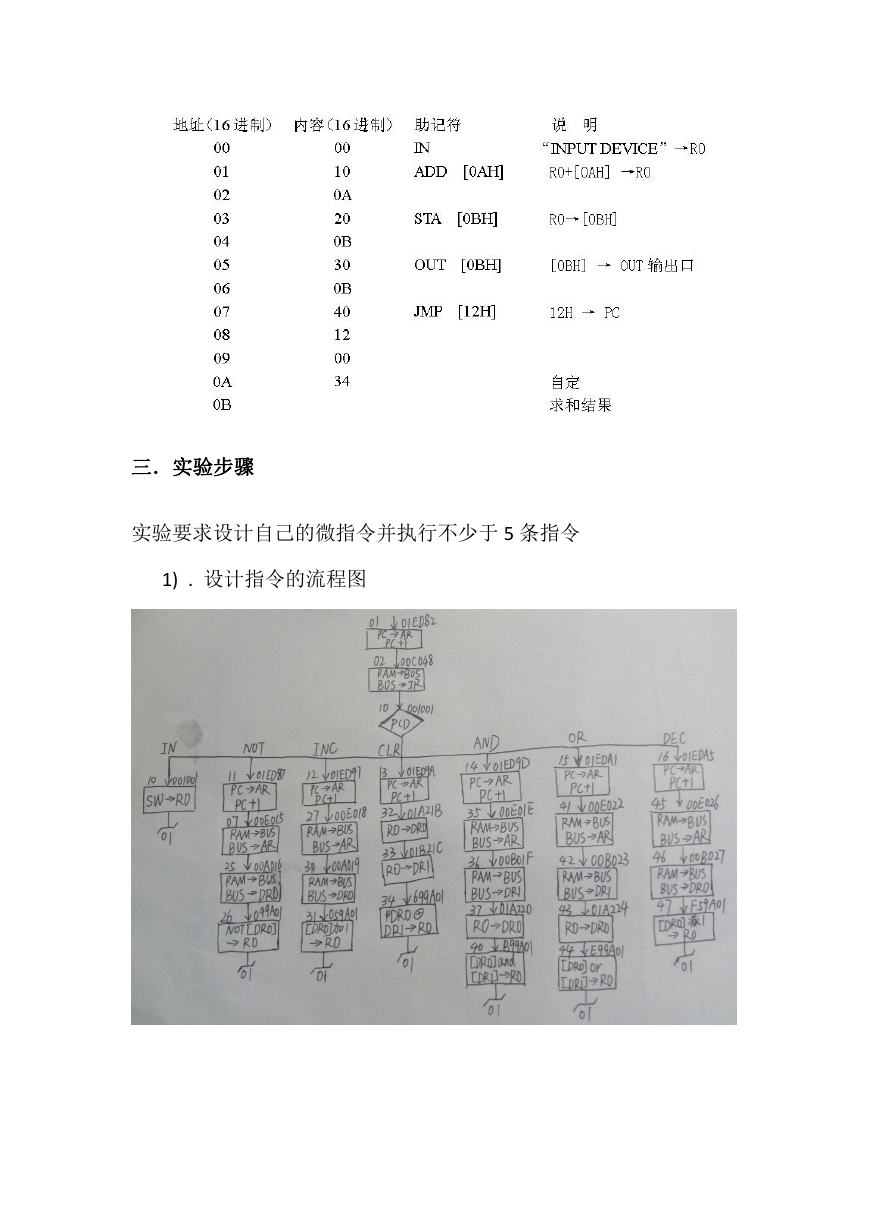 地址(16进制) 内容(16进制) 助记符 说 明
00 00 IN “INPUT DEVICE”→R0
01 10 ADD [0AH] R0+[0AH] →R0
02 0A
03 20 STA [0BH] R0→[0BH]
04 0B
05 30 OUT [0BH] [0BH] → OUT 输出口
06 0B
07 40 JMP [12H] 12H → PC
08 12
09 00
0A 34 自定
0B 求和结果
三．实验步骤
实验要求设计自己的微指令并执行不少于 5 条指令
1) ．设计指令的流程图
01 01ED82
PC→AR
PC+1
02 00C048
RAM→BUS
BUS→IR
10 001001
P(1)
IN NOT INC CLR AND OR DEC
10 001001
SW→R0
01
11 01ED87
PC→AR
PC+1
07 00E015
RAM→BUS
BUS→AR
25 00A016
RAM→BUS
BUS→DR0
26 099A01
NOT[DR0]
→R0
01
12 01ED97
PC→AR
PC+1
27 00E018
RAM→BUS
BUS→AR
30 00A019
RAM→BUS
BUS→DR0
31 059A01
[DR0]加1
→R0
01
13 01ED9A
PC→AR
PC+1
32 01A21B
R0→DR0
33 01B21C
R0→DR1
34 699A01
DR0⊕
DR1→R0
01
14 01ED9D
PC→AR
PC+1
35 00E01E
RAM→BUS
BUS→AR
36 00B01F
RAM→BUS
BUS→DR1
37 01A220
R0→DR0
40 B99A01
[DR0]and
[DR1]→R0
01
15 01EDA1
PC→AR
PC+1
41 00E022
RAM→BUS
BUS→AR
42 00B023
RAM→BUS
BUS→DR1
43 01A224
R0→DR0
44 E99A01
[DR0]or
[DR1]→R0
01
16 01EDA5
PC→AR
PC+1
45 00E026
RAM→BUS
BUS→AR
46 00B027
RAM→BUS
BUS→DR0
47 F59A01
[DR0]减1
→R0
01